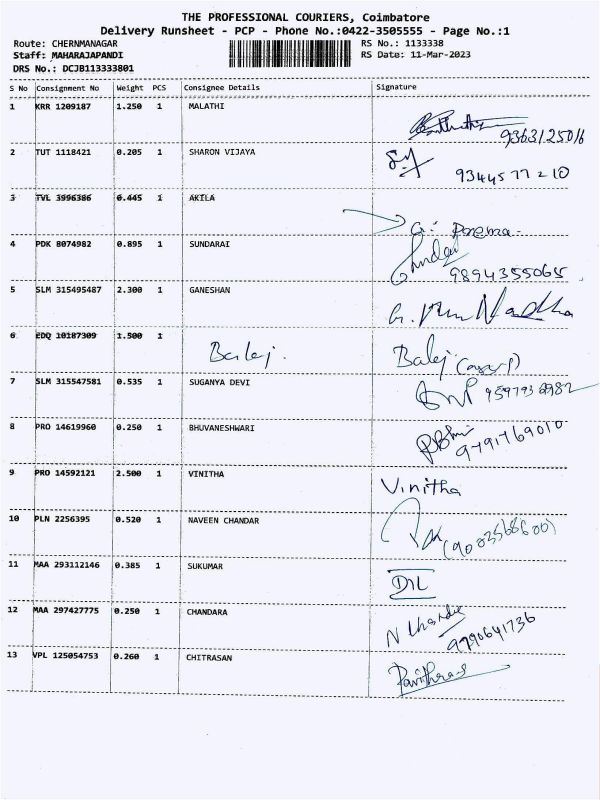 THE PROFESSIONAL COURIERS, Coimbatore
Delivery Runsheet - PCP - Phone No.:0422-3505555 - Page No.:1
Route: CHERNMANAGAR RS No.: 1133338
Staff: MAHARAJAPANDI RS Date: 11-Mar-2023
DRS No.: DCJB113333801
S No Consignment No Weight PCS Consignee Details Signature
1 KRR 1209187 1.250 1 MALATHI
9363125016
2 TUT 1118421 0.205 1 SHARON VIJAYA
9344577210
3 TVL 3996386 0.445 1 AKILA
G. Prema
4 PDK 8074982 0.895 1 SUNDARAI
9894355065
5 SLM 315495487 2.300 1 GANESHAN
6 EDQ 10187309 1.500 1
Balaj. Balaj
7 SLM 315547581 0.535 1 SUGANYA DEVI
8 PRO 14619960 0.250 1 BHUVANESHWARI
9791769010
9 PRO 14592121 2.500 1 VINITHA
Vinitha
10 PLN 2256395 0.520 1 NAVEEN CHANDAR
(9003568600)
11 MAA 293112146 0.385 1 SUKUMAR
DIL
12 MAA 297427775 0.250 1 CHANDARA
9790641736
13 VPL 125054753 0.260 1 CHITRASAN